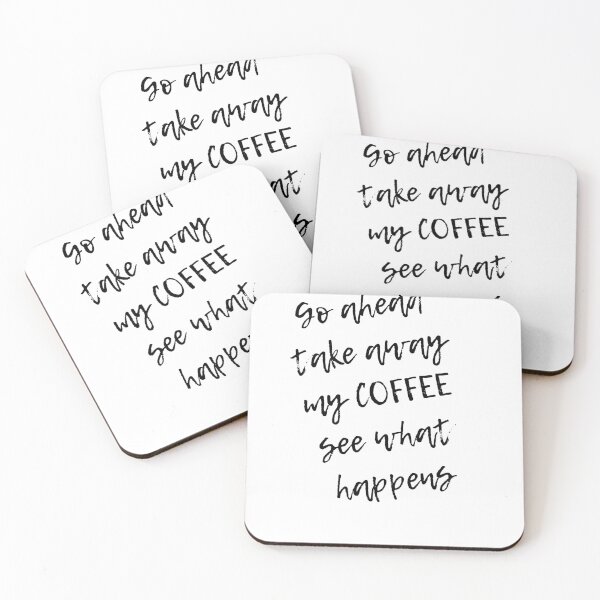 Go ahead
take away
my COFFEE
Go ahead
take away
my COFFEE
see what
Go ahead
take away
my COFFEE
see what
happen
Go ahead
take away
my COFFEE
see what
happens